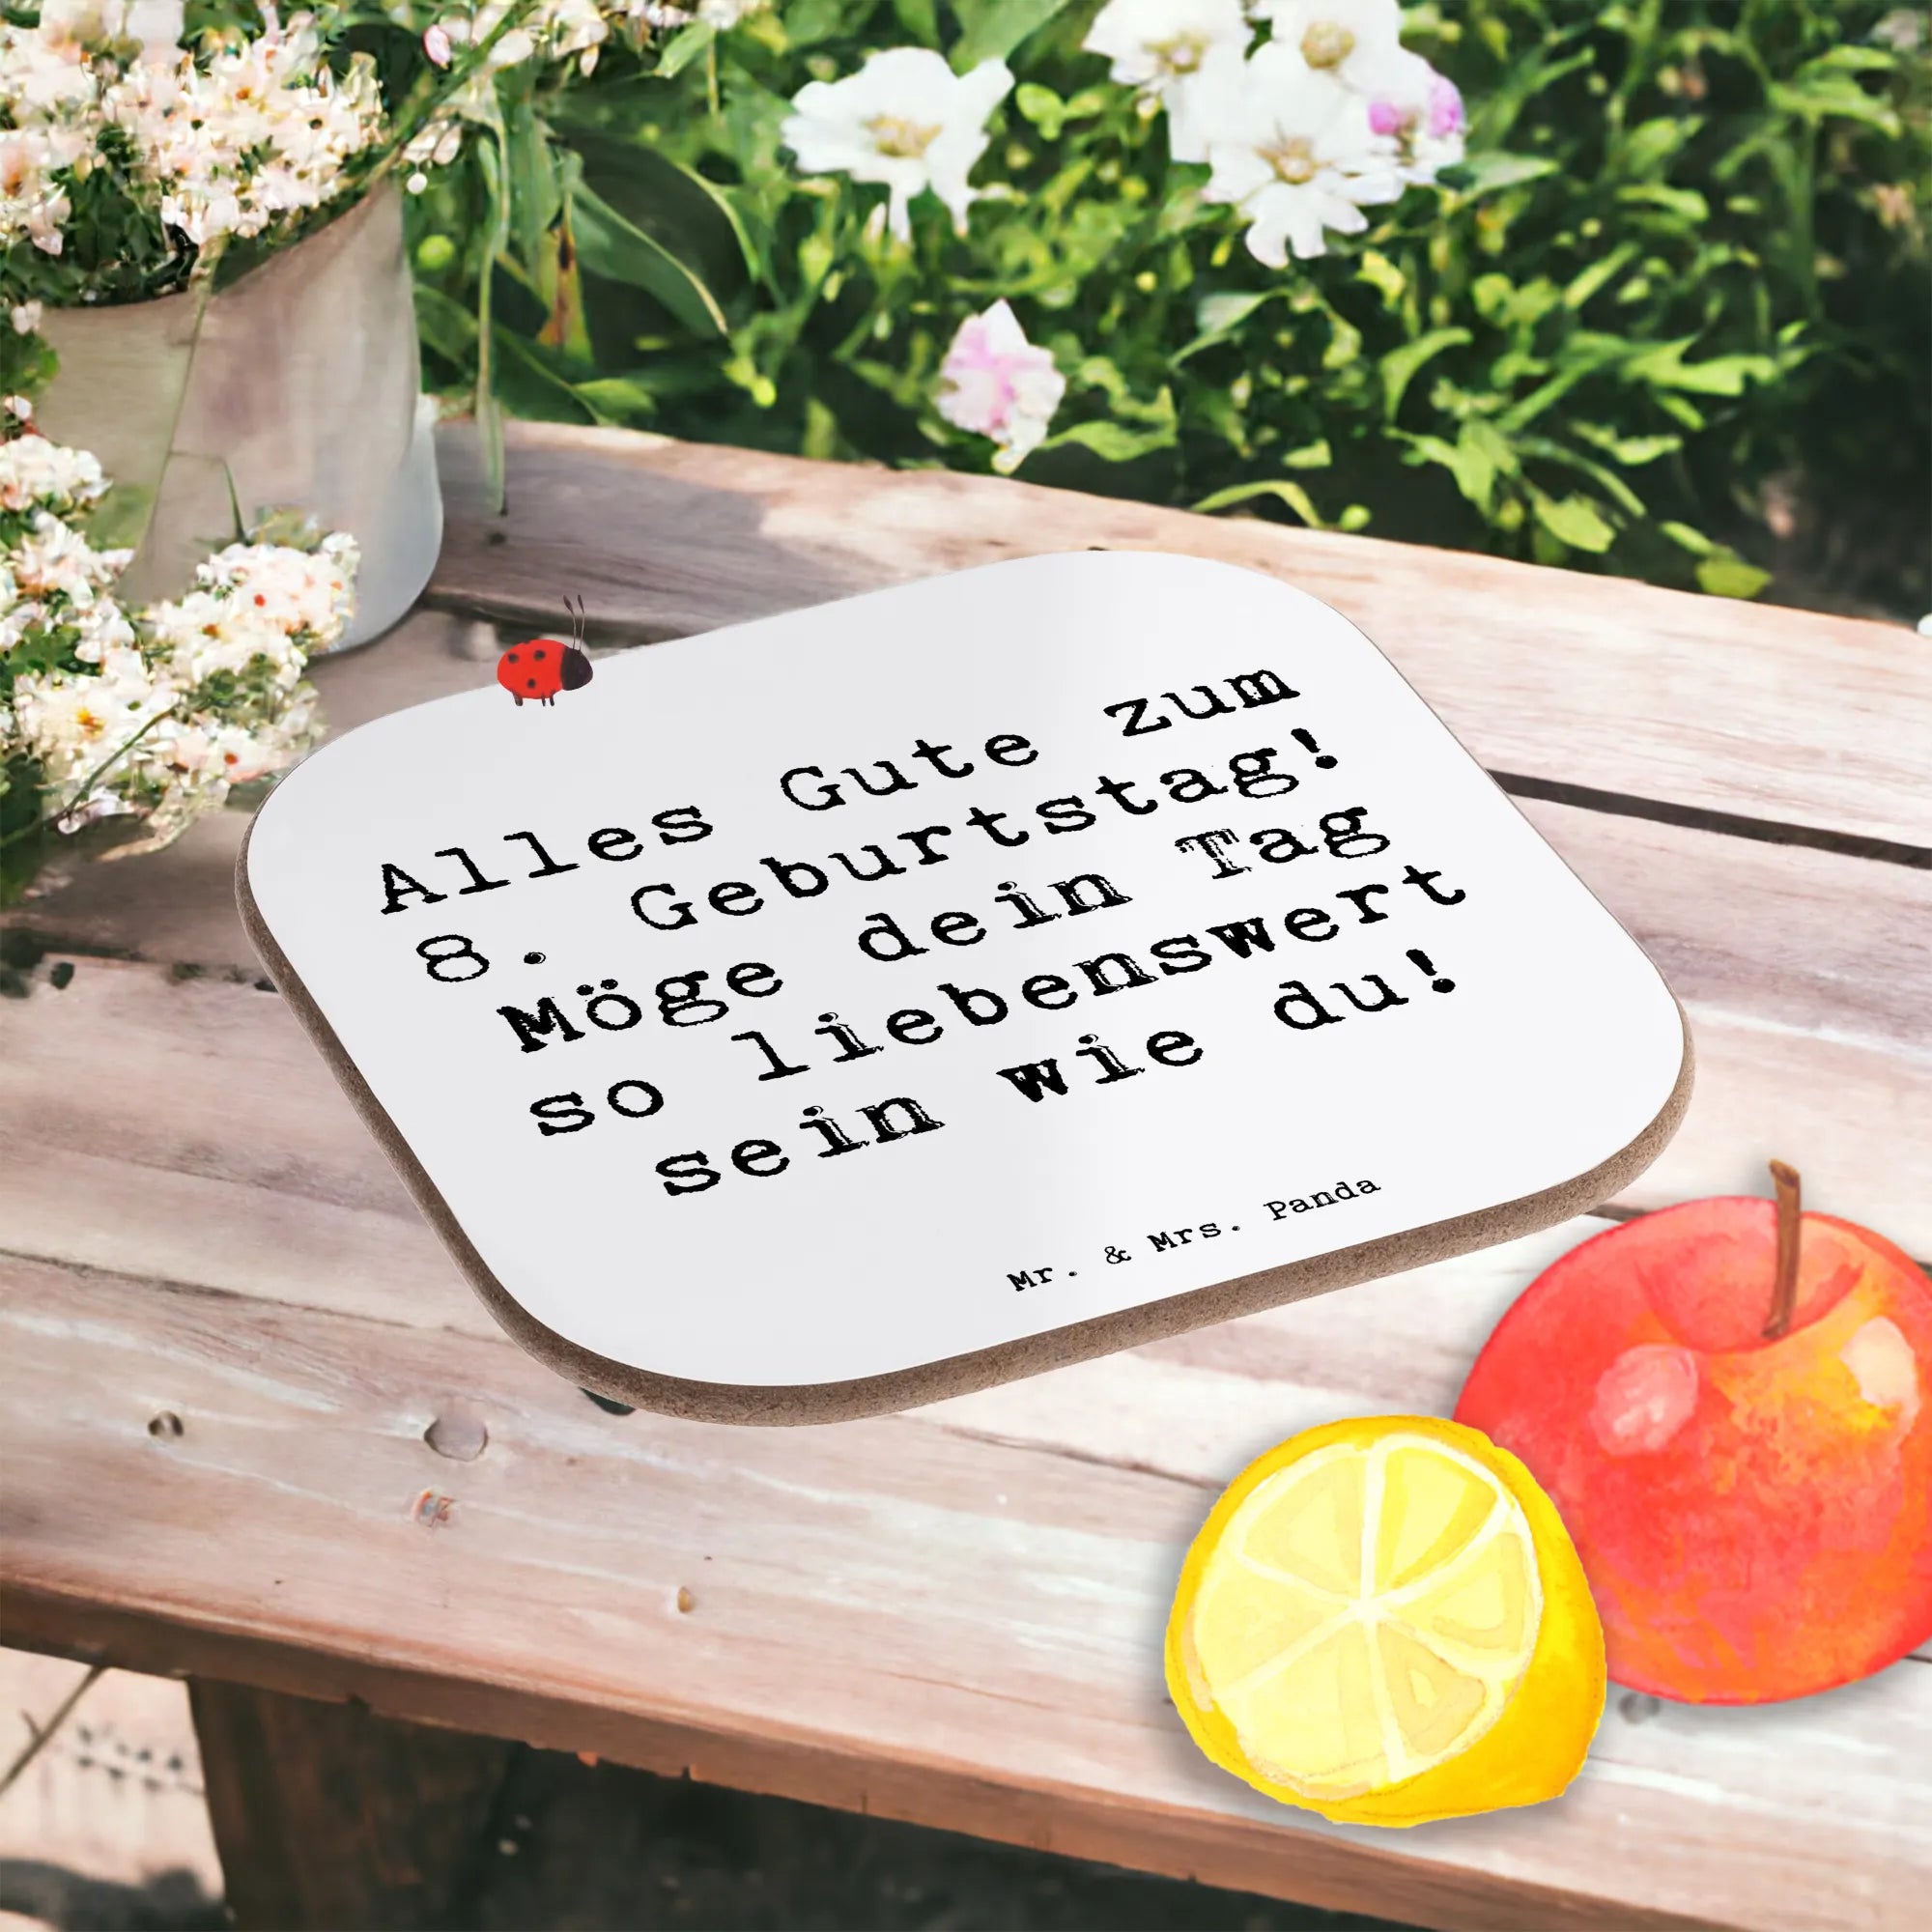 Alles Gute zum
8. Geburtstag!
Möge dein Tag
so liebenswert
sein wie du!
Mr. & Mrs. Panda